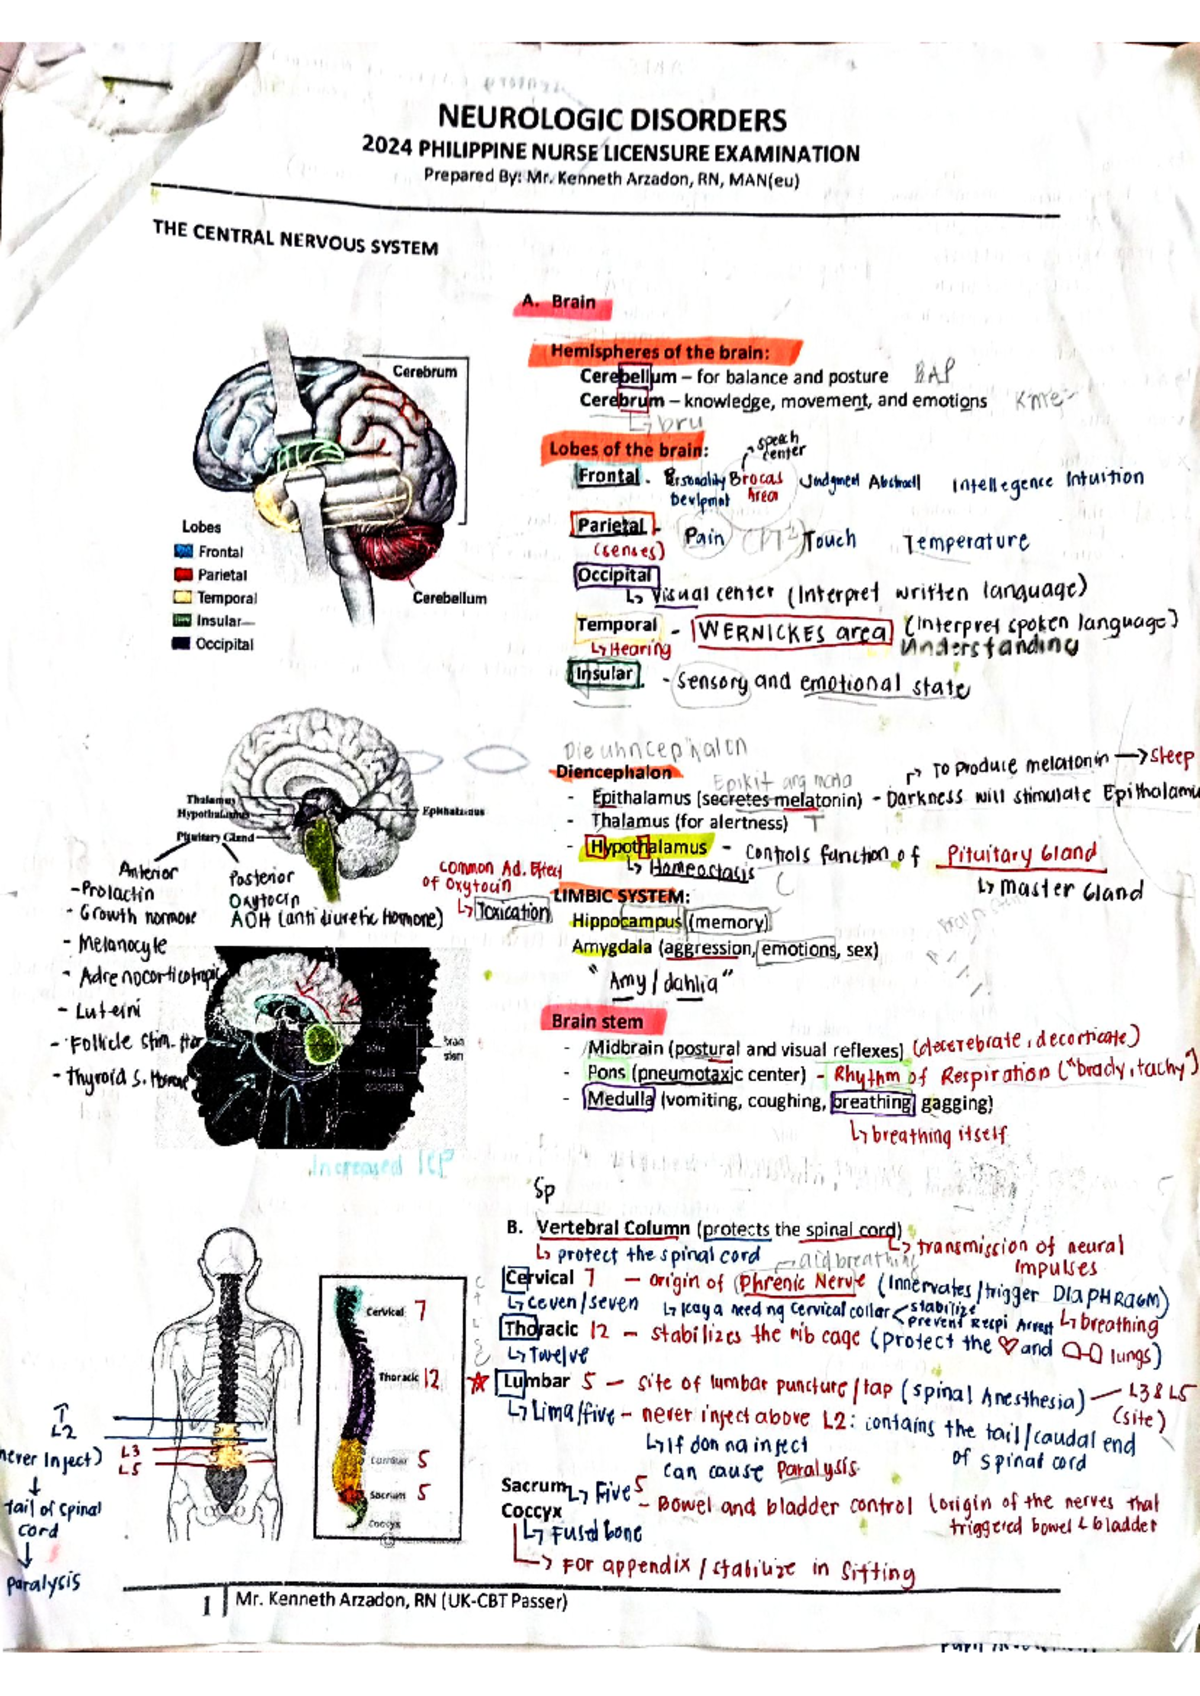 NEUROLOGIC DISORDERS
2024 PHILIPPINE NURSE LICENSURE EXAMINATION
Prepared By: Mr. Kenneth Arzadon, RN, MAN(eu)
THE CENTRAL NERVOUS SYSTEM
A. Brain
Hemispheres of the brain:
Cerebellum – for balance and posture BAP
Cerebrum – knowledge, movement, and emotions
↳ bru
Lobes of the brain:
speech center
Frontal - Personality Brocas Judgment Abstract Intellegence Intuition
Area
Parietal - Pain Touch Temperature
(senses)
Occipital
↳ Visual center (Interpret written language)
Temporal - WERNICKES area (Interpret spoken language)
↳ Hearing Understanding
Insular - Sensory and emotional state
Cerebrum
Lobes
Frontal
Parietal
Temporal
Insular
Occipital
Cerebellum
Diencephalon
To produce melatonin → Sleep
- Epithalamus (secretes melatonin) - Darkness will stimulate Epithalamu
- Thalamus (for alertness) T
- Hypothalamus - Controls function of Pituitary Gland
↳ Homeostasis ↳ master Gland
Thalamus
Hypothalamus
Pituitary Gland
Epithalamus
Anterior
- Prolactin
- Growth hormone
- Melanocyte
- Adrenocorticotropic
- Luteini
- Follicle stim. Hor
- Thyroid S. Hormone
Posterior
Oxytocin
ADH (anti diuretic Hormone)
Common Ad. Effect
of Oxytocin
↳ Toxication
LIMBIC SYSTEM:
Hippocampus (memory)
Amygdala (aggression, emotions, sex)
"Amy / dahlia"
Brain stem
- Midbrain (postural and visual reflexes) (decerebrate, decorticate)
- Pons (pneumotaxic center) - Rhythm of Respiration ("brady, tachy")
- Medulla (vomiting, coughing, breathing, gagging)
↳ breathing itself
Increased ICP
Sp
B. Vertebral Column (protects the spinal cord)
↳ transmission of neural
impulses
↳ protect the spinal cord
aid breathing
Cervical 7 - origin of Phrenic Nerve (Innervates/trigger DIAPHRAGM)
↳ Ceven/seven ↳ kaya need ng Cervical collar < stabilize
prevent Respi Arrest ↳ breathing
Thoracic 12 - stabilizes the rib cage (protect the ♡ and lungs)
↳ Twelve
Lumbar 5 - site of lumbar puncture/tap (spinal Anesthesia) - L3 & L5
(site)
↳ Lima/five - never inject above L2: contains the tail/caudal end
of spinal cord
↳ If don na inject
can cause Paralysis
Sacrum ↳ Five 5 - Bowel and bladder control (origin of the nerves that
triggered bowel & bladder
Coccyx
↳ Fused bone
↳ For appendix / stabilize in sitting
Cervical 7
Thoracic 12
Lumbar 5
Sacrum 5
Coccyx
L2
never Inject)
L3
L5
tail of spinal
cord
↓
paralysis
1 Mr. Kenneth Arzadon, RN (UK-CBT Passer)